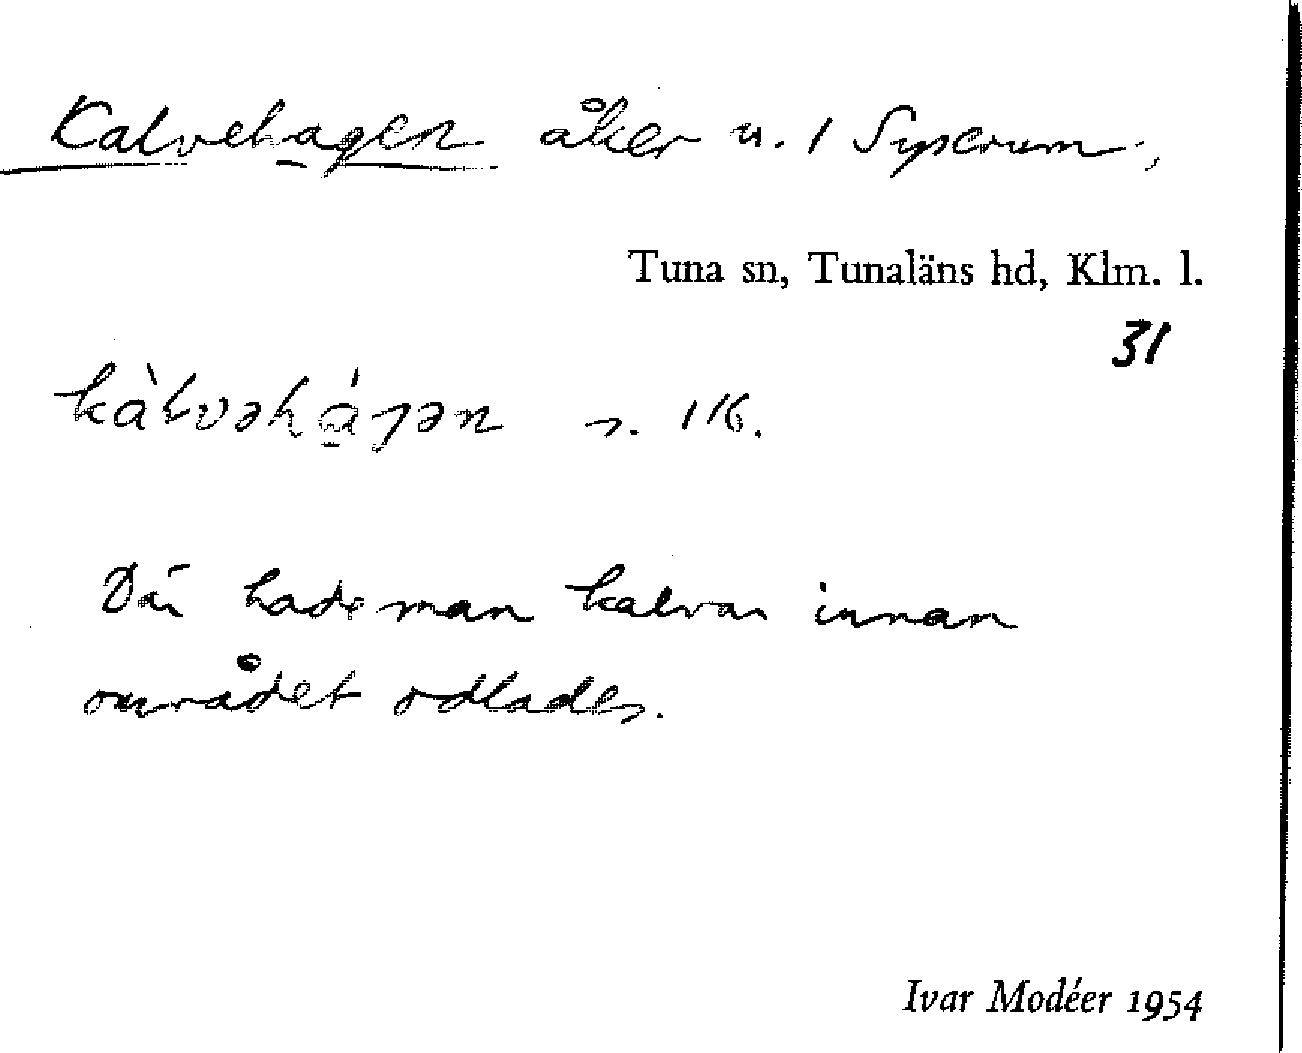 Kalvehagen åker u. 1 Syserum,
Tuna sn, Tunaläns hd, Klm. l.
31
kàlvəhá̠gən s. 116.
Där hade man kalvar innan
området odlades.
Ivar Modéer 1954